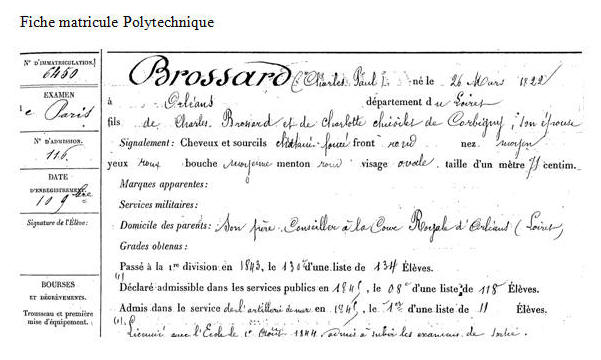 Fiche matricule Polytechnique
N° D'IMMATRICULATION.
6450
EXAMEN
de Paris
N° D'ADMISSION.
116
DATE
D'ENREGISTREMENT.
10 9bre
Signature de l'Élève:
BOURSES
ET DÉGRÈVEMENTS.
Trousseau et première
mise d'équipement.
Brossard (Charles Paul) né le 26 Mars 1822
à Orléans département du Loiret
fils de Charles Brossard et de Charlotte de Corbigny, son épouse
Signalement: Cheveux et sourcils châtain foncé front rond nez moyen
yeux roux bouche moyenne menton rond visage ovale taille d'un mètre 71 centim.
Marques apparentes:
Services militaires:
Domicile des parents: Son père Conseiller à la Cour Royale d'Orléans (Loiret)
Grades obtenus:
Passé à la 1re division en 1843, le 130e d'une liste de 134 Élèves.
(1)
Déclaré admissible dans les services publics en 1845, le 08e d'une liste de 118 Élèves.
Admis dans le service de l'artillerie de mer en 1845, le 1er d'une liste de 11 Élèves.
(1) Licencié avec l'École le août 1844 admis à subir les examens de sortie.